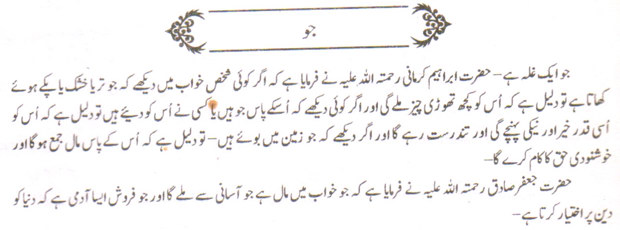 جو
جو ایک غلہ ہے – حضرت ابراہیم کرمانی رحمتہ اللہ علیہ نے فرمایا ہے کہ اگر کوئی شخص خواب میں دیکھے کہ جو تر یا خشک یا پکے ہوئے
کھاتا ہے تو دلیل ہے کہ اُس کو کچھ تھوڑی چیز ملے گی اور اگر کوئی دیکھے کہ اُسکے پاس جو ہیں یا کسی نے اُس کو دیئے ہیں تو دلیل ہے کہ اُس کو
اُسی قدر خیر اور نیکی پہنچے گی اور تندرست رہے گا اور اگر دیکھے کہ جو زمین میں بوئے ہیں – تو دلیل ہے کہ اُس کے پاس مال جمع ہوگا اور
خوشنودی حق کا کام کرے گا –
حضرت جعفر صادق رحمتہ اللہ علیہ نے فرمایا ہے کہ جو خواب میں مال ہے جو آسانی سے ملے گا اور جو فروش ایسا آدمی ہے کہ دنیا کو
دین پر اختیار کرتا ہے –